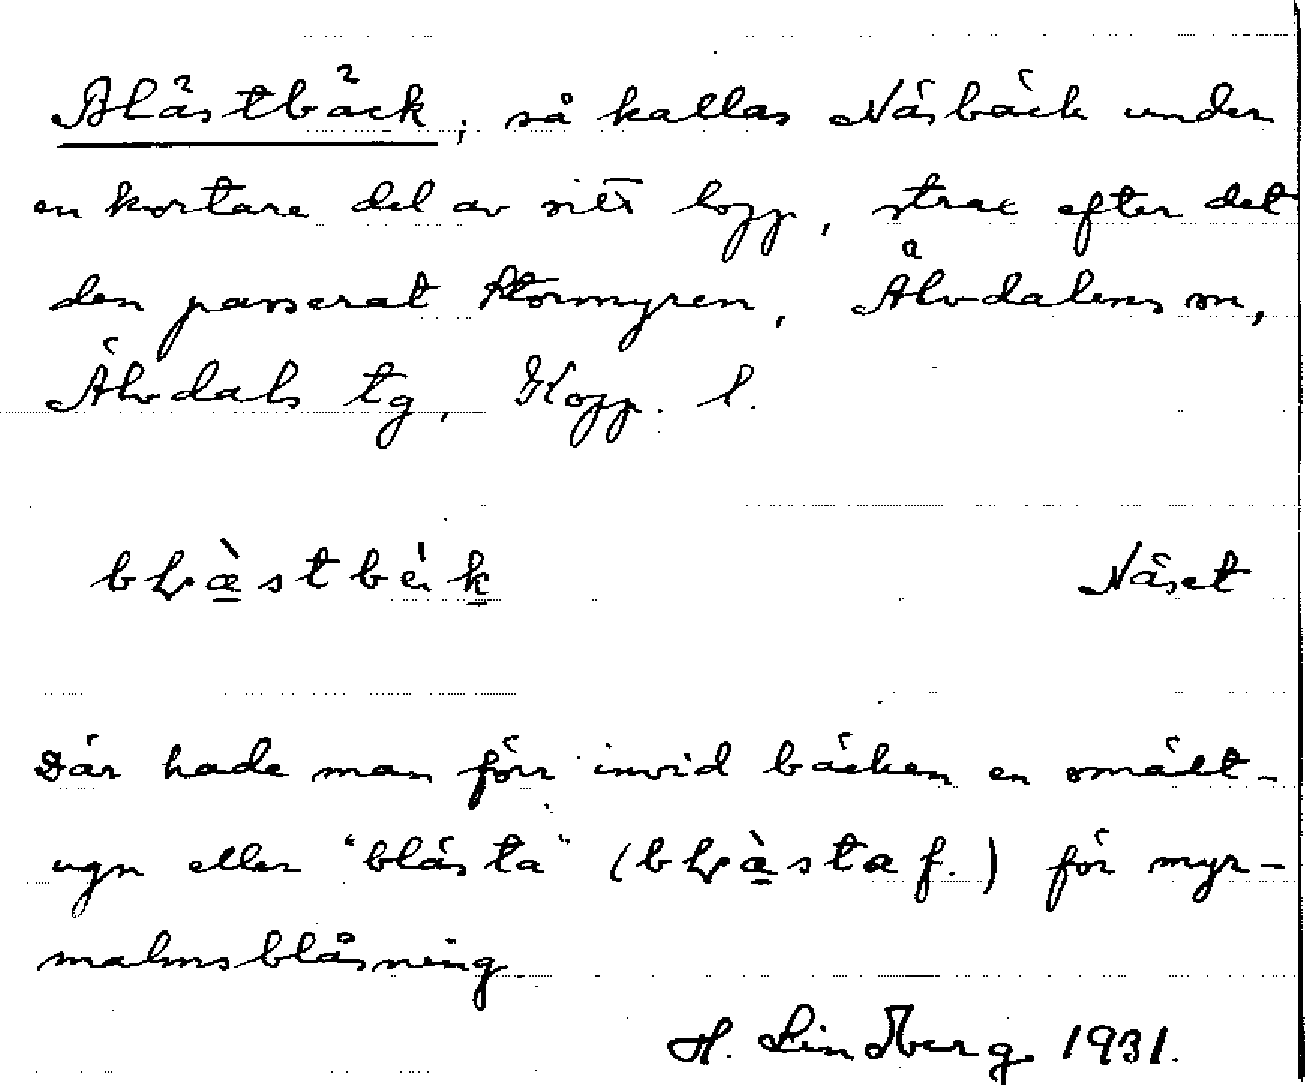 Blästbäck, så kallas Näsbäck under
en kortare del av sitt lopp, strax efter det
den passerat Stormyren, Älvdalens sn,
Älvdals tg, Kopp. l.
Näset
Där hade man förr invid bäcken en smält-
ugn eller "blästa" (              f.) för myr-
malmsblåsning
H. Lindberg 1931.